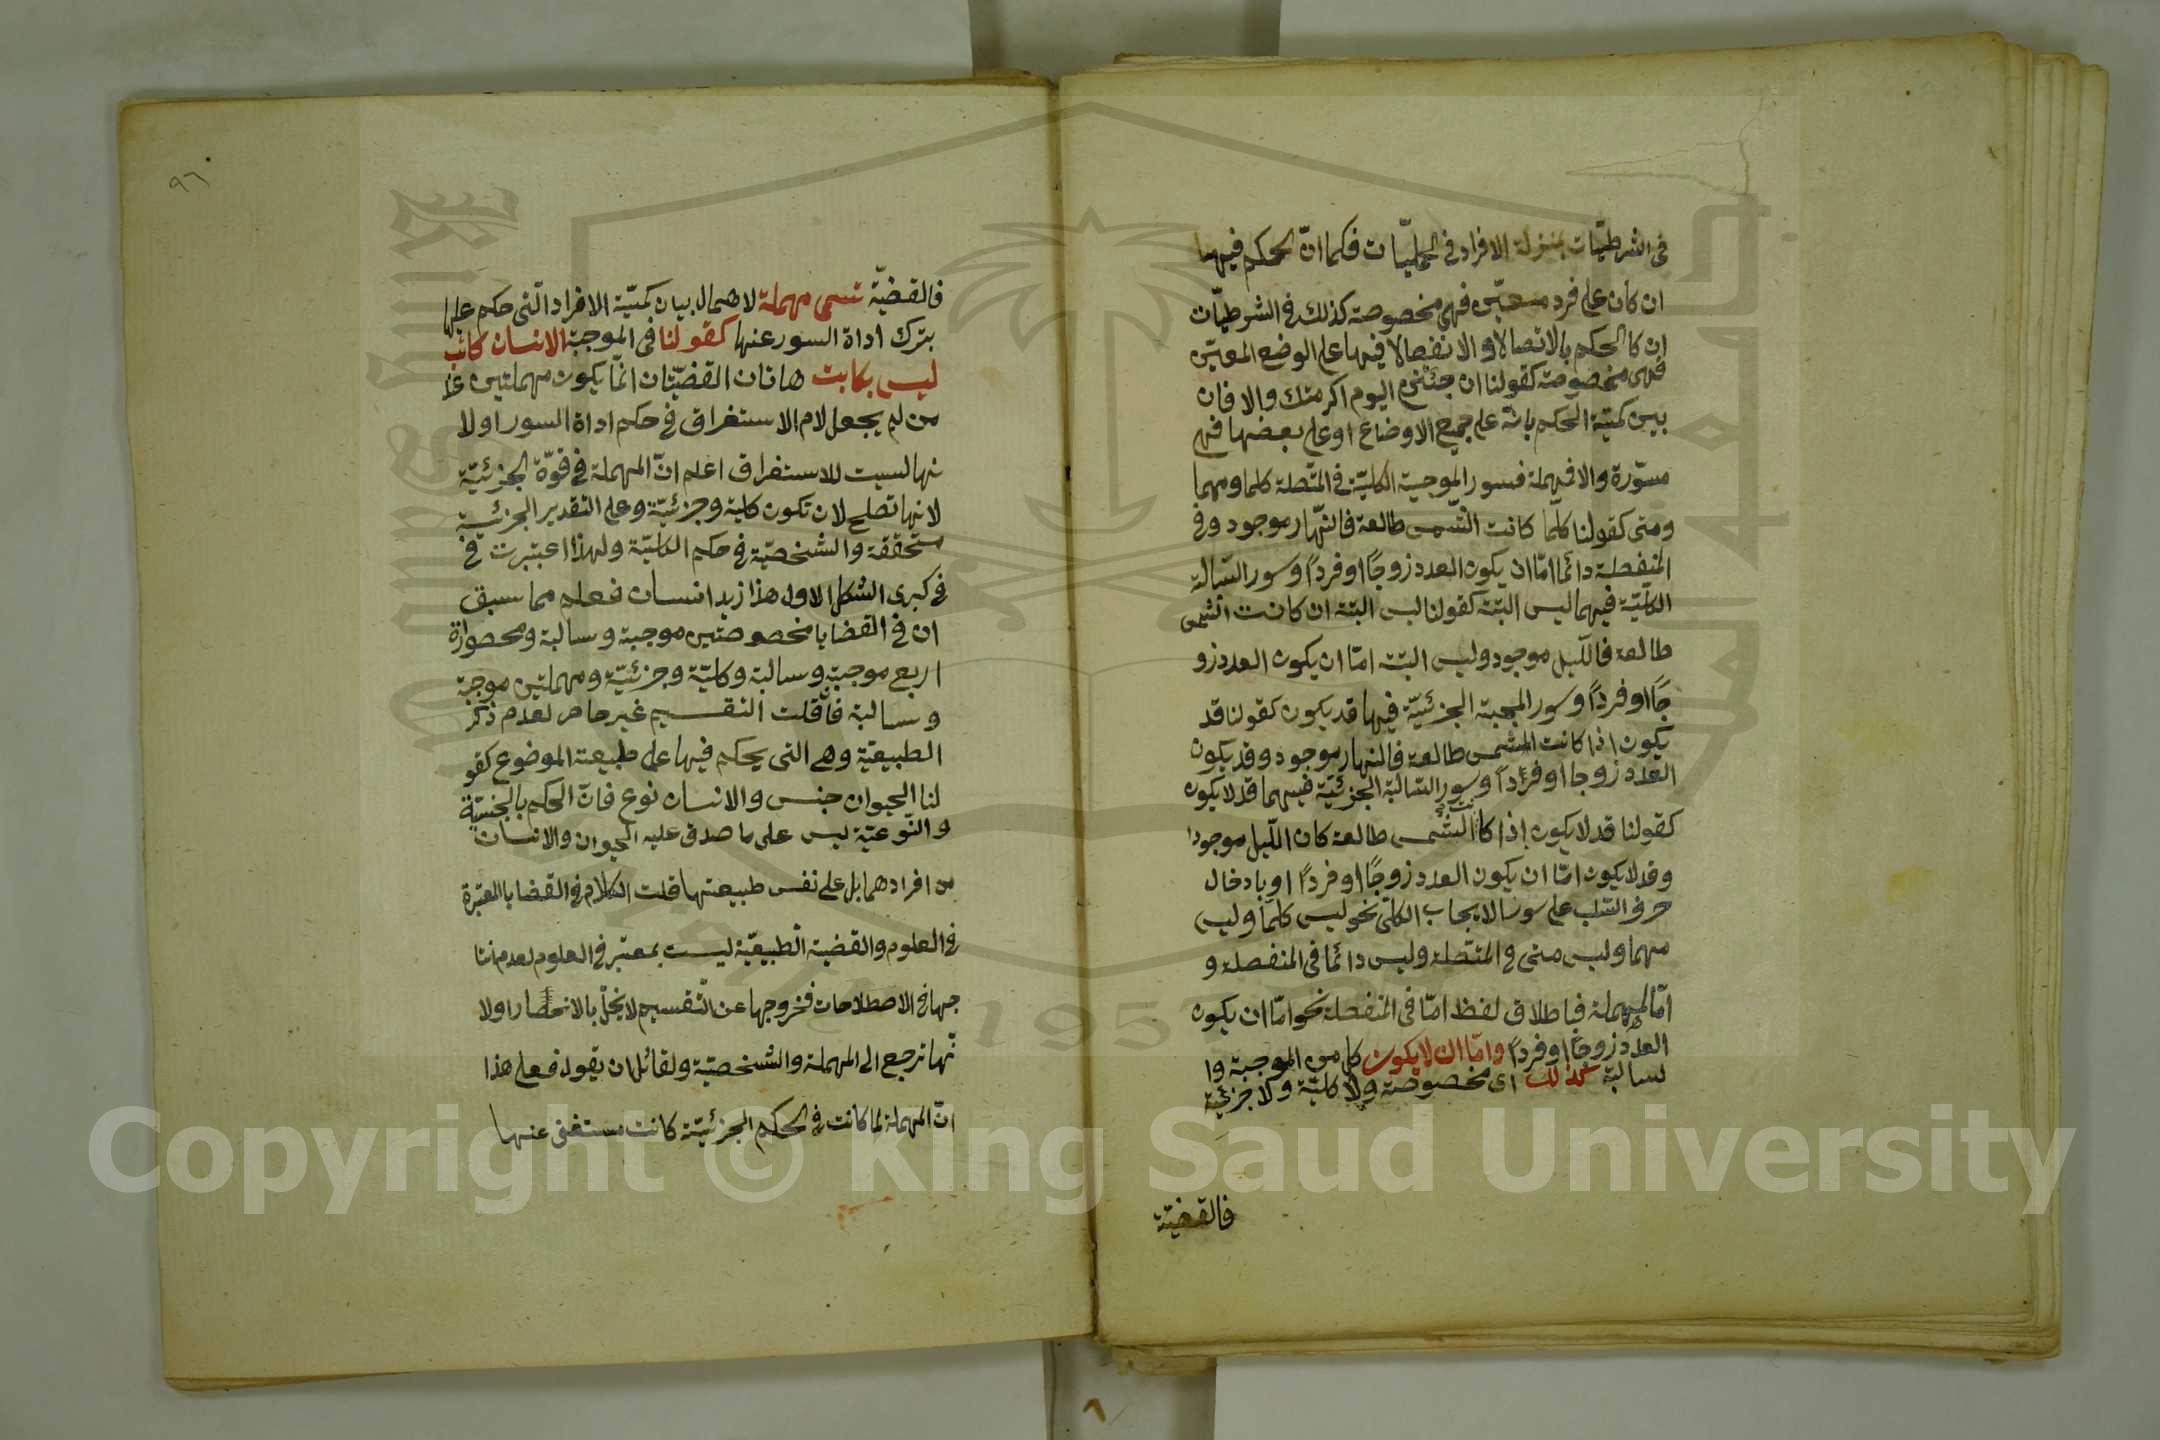 فى الشرطيّات بمنزلة الافراد فى الحمليّات فكما انّ الحكم فيها
ان كان على فرد معيّن فهى مخصوصة كذلك فى الشرطيّات
ان كا الحكم بالاتصال او الانفصال فيها على الوضع المعيّن
فهى مخصوصة كقولنا ان جئتنى اليوم اكرمتك والا فان
بين كميّة الحكم بانّه على جميع الاوضاع او على بعضها فهى
مسوّرة والا فمهملة فسور الموجبة الكليّة فى المتّصلة كلما ومهما
ومتى كقولنا كلما كانت الشّمس طالعة فالنّهار موجود وفى
المنفصلة دائما امّا ان يكون العدد زوجًا او فردًا وسور السّالبة
الكلّيّة فيهما ليس البتة كقولنا ليس البتة ان كانت الشمس
طالعة فاللّيل موجود وليس البتة امّا ان يكون العدد زو
جًا او فردًا وسور المجبة الجزئيّة فيها قد يكون كقولنا قد
يكون اذا كانت الشمس طالعة فالنهار موجود وقد يكون
العدد زوجا او فردًا وسور السّالبة الجزئيّة فيهما قد لا يكون
كقولنا قد لا يكون اذا كانت الشّمس طالعة كان اللّيل موجودا
وقد لا يكون امّا ان يكون العدد زوجًا او فردًا او بادخال
حرف السّلب على سور الايجاب الكلّى نحو ليس كلمّا وليس
مهما وليس متى فى المتّصلة وليس دائمًا فى المنفصلة و
امّا المهملة فباطلاق لفظ امّا فى المنفصلة نحو امّا ان يكون
العدد زوجًا او فردًا وامّا ان لا يكون كل من الموجبة وا
لسالبة كذلك اى مخصوصة ولا كليّة ولا جزئيّة
فالقضيّة
٩٦
فالقضيّة تسمى مهملة لاهمال بيان كميّة الافراد الّتى حكم عليها
بترك اداة السور عنها كقولنا فى الموجبة الانسان كاتب
ليس بكابت هاتان القضيّتان انّما يكون مهملتين على
من لم يجعل لام الاستغراق فى حكم اداة السور اولا
نها لسيت للاستغراق اعلم انّ المهملة فى قوّة الجزئيّة
لانها تصلح لان تكون كلية وجزئيّة وعلى التقدير الجزئية
متحققة والشخصيّة فى حكم الكليّة ولهذا اعتبرت فى
فى كبرى الشكل الاول هذا زيد انسان فعلم مما سبق
ان فى القضايا مخصوصتين موجبة وسالبة ومحصوارة
اربع موجبة وسالبة وكليّة وجزئيّة ومهملتين موجبة
وسالبة فان قلت التقسيم غير حاصر لعدم ذكر
الطبيعيّة وهى التى يحكم فيها على طبيعة الموضوع كقو
لنا الحيوان جنس والانسان نوع فانّ الحكم بالجنسيّة
والنّوعيّة ليس على ما صدق عليه الحيوان والانسان
من افرادهما بل على نفس طبيعتها قلت الكلام فى القضايا المعتبرة
فى العلوم والقضية الطّبيعيّة ليست بمعتبر فى العلوم لعدم انتا
جها فى الاصطلاحات فخروجها عن التّقسيم لا يخلّ بالانحصار اولا
نّها ترجع الى المهملة والشخصيّة ولقائل ان يقول فعلى هذا
انّ المهملة لما كانت فى الحكم الجزئيّة كانت مستغنى عنها
Copyright © King Saud University
1957